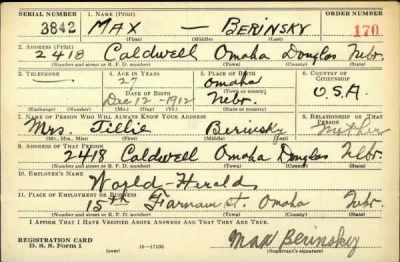 SERIAL NUMBER 1. NAME (Print) ORDER NUMBER
3842 MAX — BERINSKY 170
(First) (Middle) (Last)
2. ADDRESS (Print)
2418 Caldwell Omaha Douglas Nebr.
(Number and street or R. F. D. number) (Town) (County) (State)
3. TELEPHONE 4. AGE IN YEARS 5. PLACE OF BIRTH 6. COUNTRY OF CITIZENSHIP
— 27 Omaha
DATE OF BIRTH (Town or county)
Dec 12 - 1912 Nebr. U.S.A.
(Exchange) (Number) (Mo.) (Day) (Yr.) (State or country)
7. NAME OF PERSON WHO WILL ALWAYS KNOW YOUR ADDRESS 8. RELATIONSHIP OF THAT PERSON
Mrs. Tillie Berinsky Mother
(Mr., Mrs., Miss) (First) (Middle) (Last)
9. ADDRESS OF THAT PERSON
2418 Caldwell Omaha Douglas Nebr.
(Number and street or R. F. D. number) (Town) (County) (State)
10. EMPLOYER'S NAME
World-Herald
11. PLACE OF EMPLOYMENT OR BUSINESS
15th Farnam St. Omaha Nebr.
(Number and street or R. F. D. number) (Town) (County) (State)
I AFFIRM THAT I HAVE VERIFIED ABOVE ANSWERS AND THAT THEY ARE TRUE.
REGISTRATION CARD
D. S. S. Form 1 16-17105 Max Berinsky
(Registrant's signature)